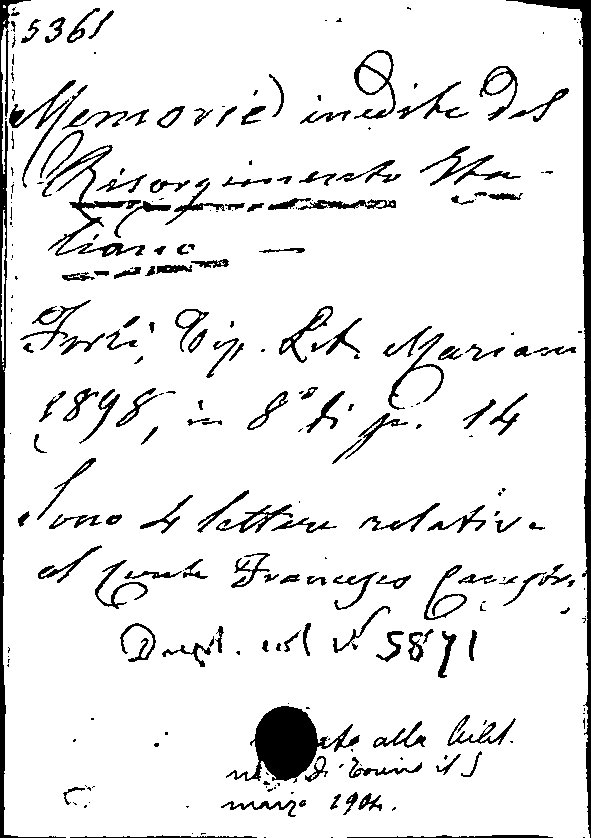 5361
Memorie inedite del
Risorgimento Ita-
liano —
Forlì, Tip. Lit. Mariani
1898, in 8° di p. 14
Sono 4 lettere relative
al conte Francesco
Dupl. col N° 5871
alla bibl.
di Torino il 5
marzo 1904.